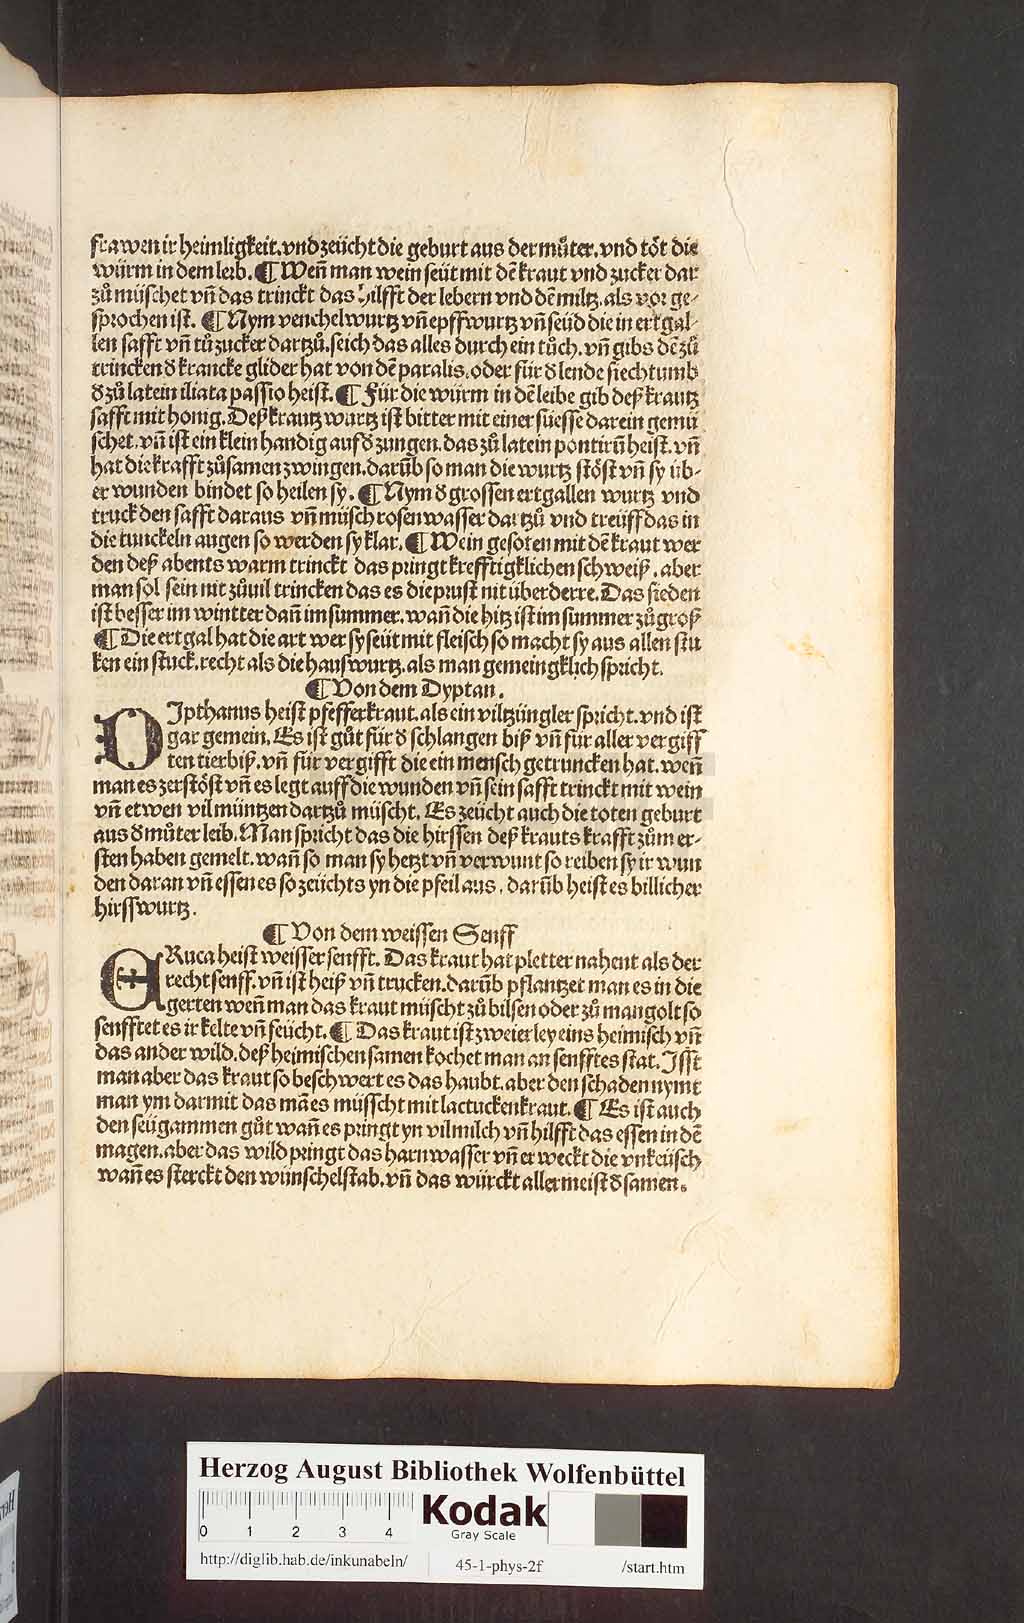 frawen ir heimligkeit. vnd zeücht die geburt aus der můter. vnd tȯt die
würm in dem leib. ¶ Wen̄ man wein seüt mit dē kraut vnd zucker dar
zů müschet vn̄ das trinckt das hilfft der lebern vnd dē miltz. als vor ge-
sprochen ist. ¶ Nym venchelwurtz vn̄ epffwurtz vn̄ seüd die in ertgal-
len safft vn̄ tů zucker dartzů. seich das alles durch ein tůch. vn̄ gibs dē zů
trincken đ krancke glider hat von dē paralis. oder für đ lende siechtumb
đ zů latein iliata passio heist. ¶ Für die würm in dē leibe gib deß krautz
safft mit honig. Deß krautz wurtz ist bitter mit einer süesse darein gemü
schet. vn̄ ist ein klein handig auf đ zungen. das zů latein pontirū heist. vn̄
hat die krafft zůsamen zwingen. darūb so man die wurtz stöst vn̄ sy üb-
er wunden bindet so heilen sy. ¶ Nym đ grossen ertgallen wurtz vnd
truck den safft daraus vn̄ müsch rosenwasser dartzů vnd treüff das in
die tunckeln augen so werden sy klar. ¶ Wein gesoten mit dē kraut wer
den deß abents warm trinckt das pringt krefftigklichen schweiß. aber
man sol sein nit zůuil trincken das es die prust nit überderre. Das sieden
ist besser im wintter dan̄ im summer. wan̄ die hitz ist im summer zů groß
¶ Die ertgal hat die art wer sy seüt mit fleisch so macht sy aus allen stu
ken ein stuck. recht als die hauswurtz. als man gemeingklich spricht.
¶ Von dem Dyptan.
DIpthanus heist pfefferkraut. als ein viltzüngler spricht. vnd ist
gar gemein. Es ist gůt für đ schlangen biß vn̄ für aller vergiff
ten tierbiß. vn̄ für vergifft die ein mensch getruncken hat. wen̄
man es zerstöst vn̄ es legt auff die wunden vn̄ sein safft trinckt mit wein
vn̄ etwen vil müntzen dartzů müscht. Es zeücht auch die toten geburt
aus đ můter leib. Man spricht das die hirssen deß krauts krafft zům er-
sten haben gemelt. wan̄ so man sy hetzt vn̄ verwunt so reiben sy ir wun
den daran vn̄ essen es so zeüchts yn die pfeil aus. darūb heist es billicher
hirsswurtz.
¶ Von dem weissen Senff
ERuca heist weisser senfft. Das kraut hat pletter nahent als der
recht senff. vn̄ ist heiß vn̄ trucken. darūb pflantzet man es in die
gerten wen̄ man das kraut müscht zů bilsen oder zů mangolt so
senfftet es ir kelte vn̄ seücht. ¶ Das kraut ist zweierley eins heimisch vn̄
das ander wild. deß heimischen samen kochet man an senfftes stat. Isst
man aber das kraut so beschwert es das haubt. aber den schaden nymt
man ym darmit das mā es müsscht mit lactuckenkraut. ¶ Es ist auch
den seügammen gůt wan̄ es pringt yn vil milch vn̄ hilfft das essen in dē
magen. aber das wild pringt das harnwasser vn̄ erweckt die vnkeüsch
wan̄ es sterckt den wünschelstab. vn̄ das würckt allermeist đ samen.
Herzog August Bibliothek Wolfenbüttel
0 1 2 3 4
Kodak
Gray Scale
http://diglib.hab.de/inkunabeln/ 45-1-phys-2f /start.htm